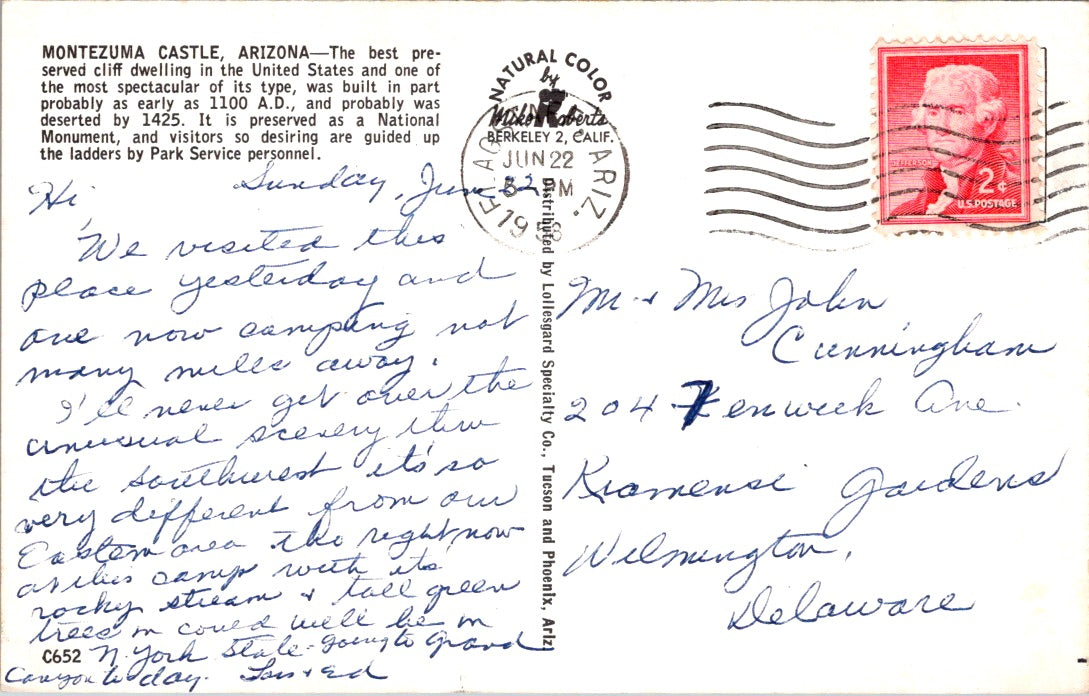 MONTEZUMA CASTLE, ARIZONA—The best pre-
served cliff dwelling in the United States and one of
the most spectacular of its type, was built in part
probably as early as 1100 A.D., and probably was
deserted by 1425. It is preserved as a National
Monument, and visitors so desiring are guided up
the ladders by Park Service personnel.
NATURAL COLOR
by
Mike Roberts
BERKELEY 2, CALIF.
FLAG ARIZ.
JUN 22
PM
1958
JEFFERSON
2¢
U.S. POSTAGE
Sunday, June 22
Hi
We visited this
place yesterday and
are now camping not
many miles away.
I'll never get over the
unusual scenery thru
the Southwest it's so
very different from our
Eastern area tho right now
at this camp with its
rocky stream & tall green
trees could well be in
N. York State - going to Grand
Canyon to day. Lois & Ed
C652
Distributed by Lollesgard Specialty Co., Tucson and Phoenix, Ariz.
Mr & Mrs John
Cunningham
204 Fenwick Ave.
Kiamensi Gardens
Wilmington,
Delaware